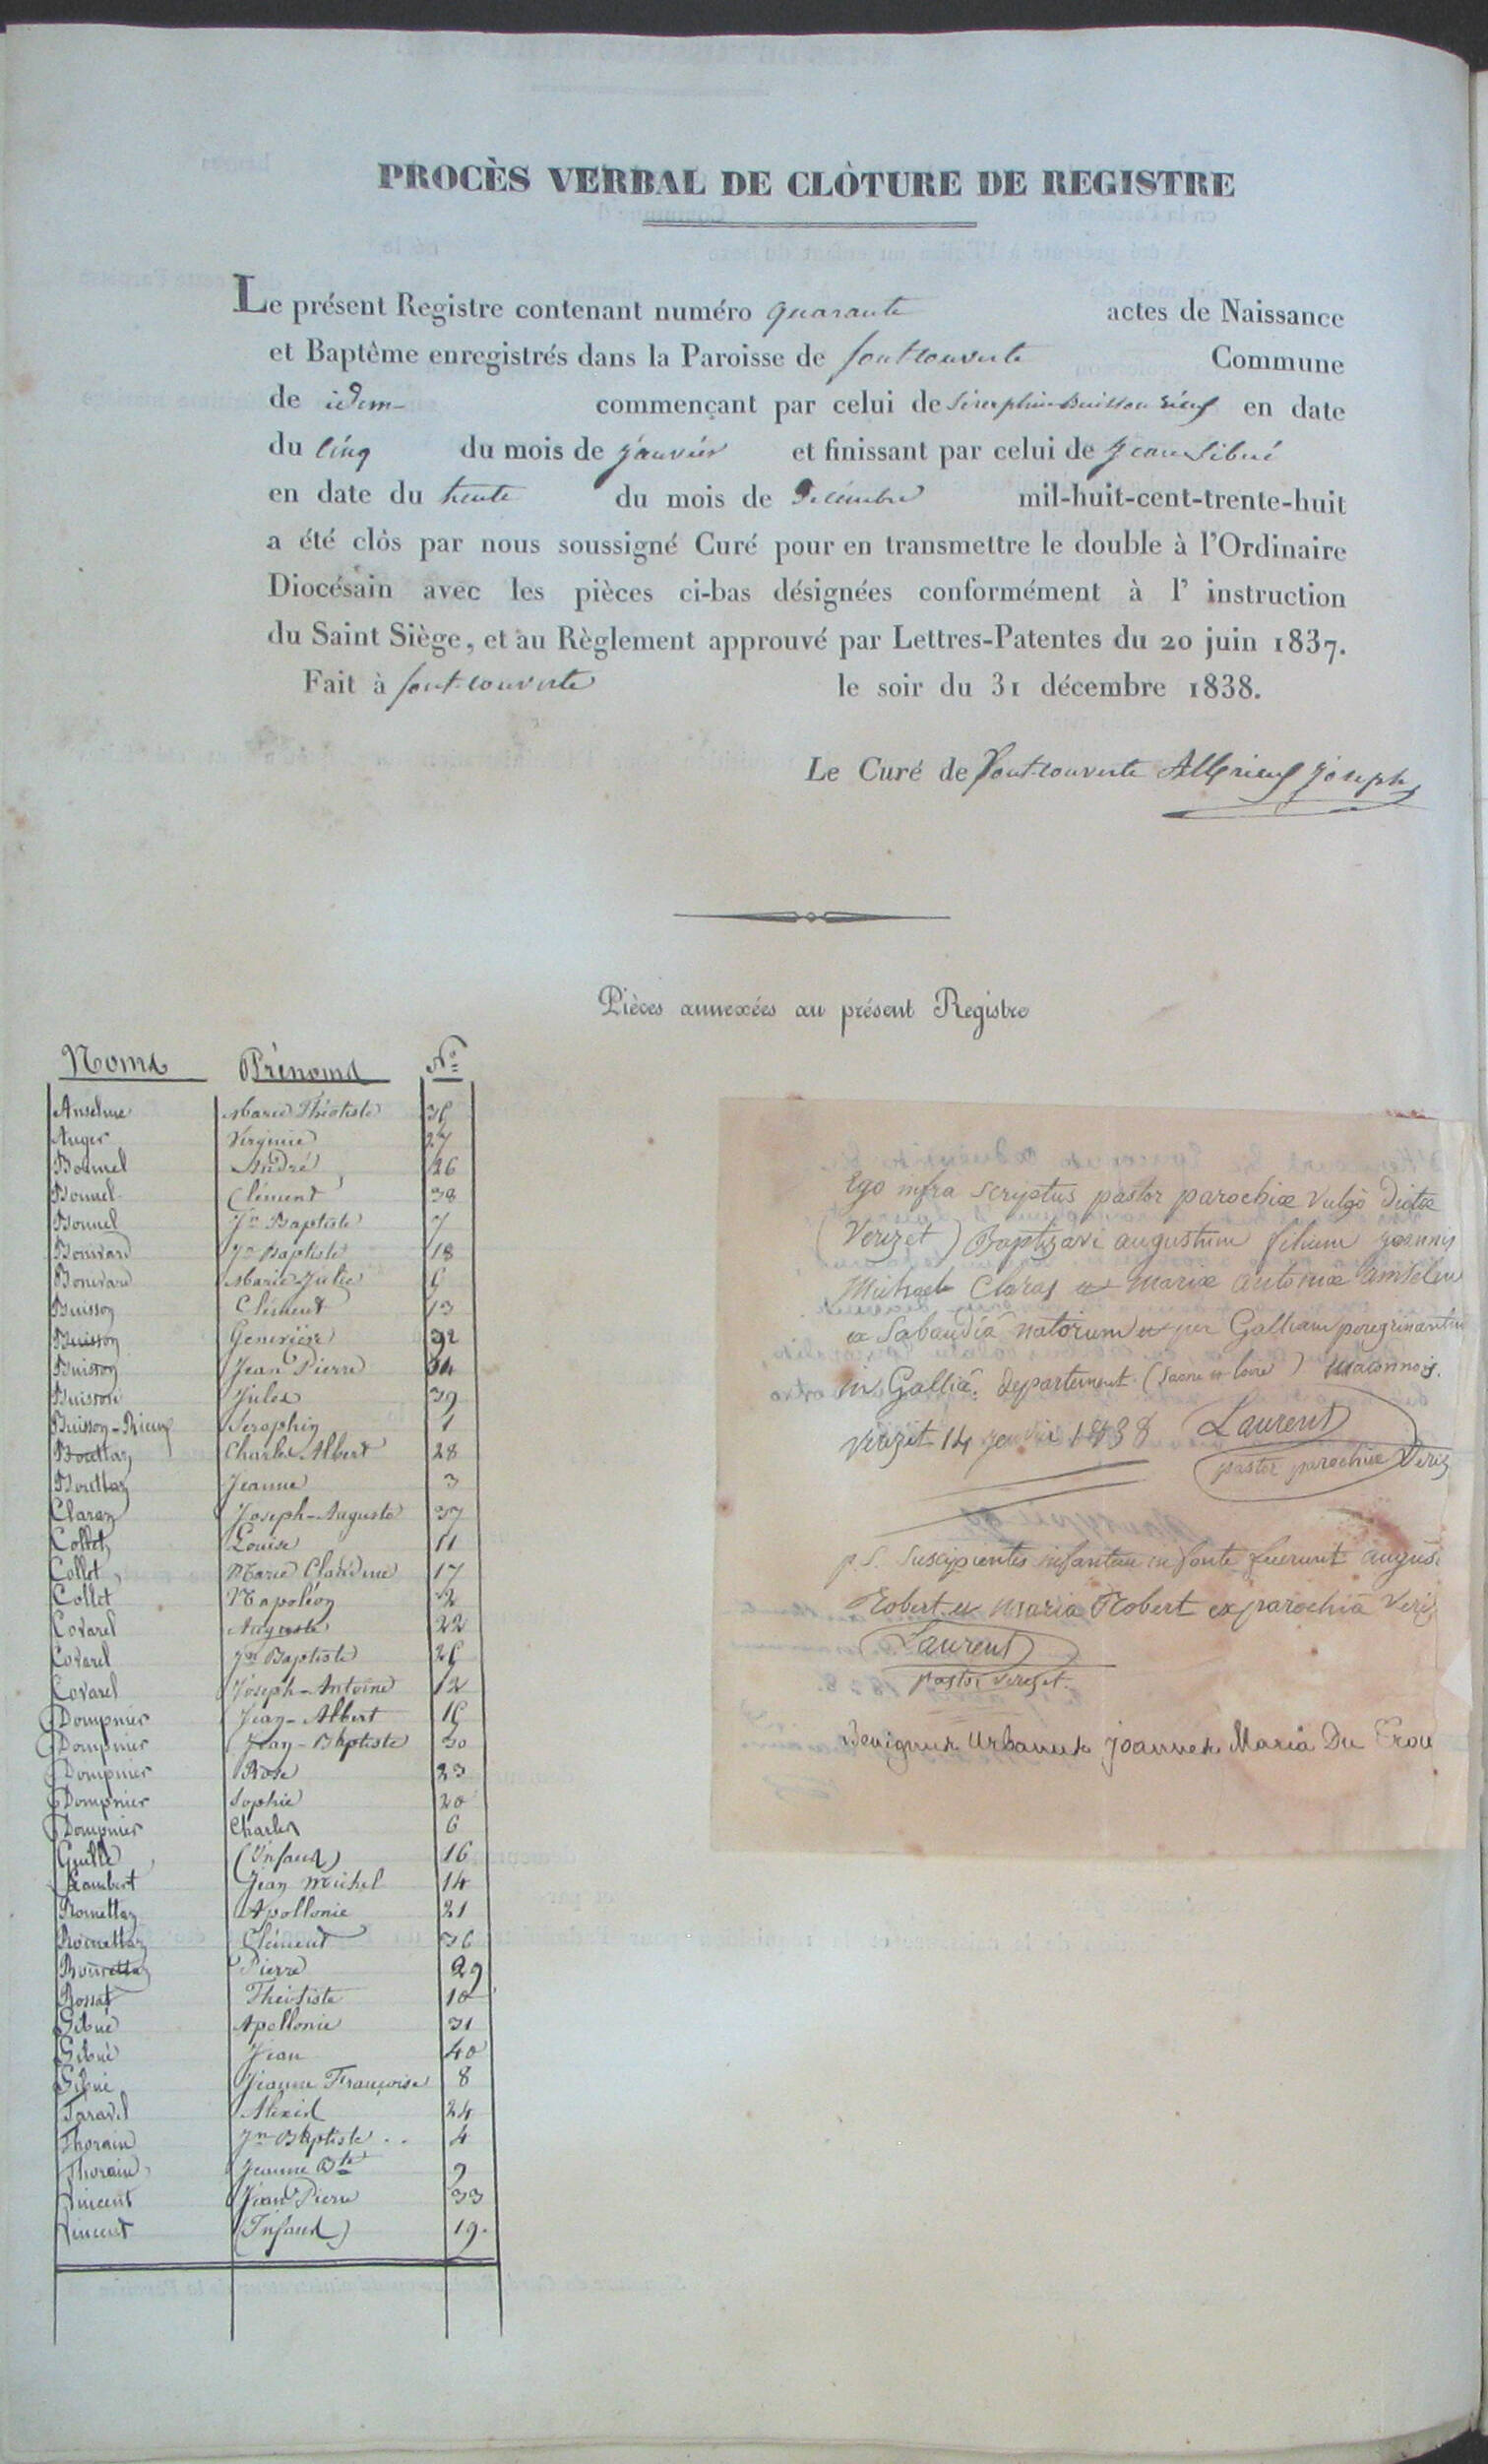 PROCÈS VERBAL DE CLÔTURE DE REGISTRE
Le présent Registre contenant numéro quarante actes de Naissance
et Baptême enregistrés dans la Paroisse de fontcouverte Commune
de idem commençant par celui de Séraphin Buisson Rieux en date
du cinq du mois de janvier et finissant par celui de Jean Sibué
en date du trente du mois de Décembre mil-huit-cent-trente-huit
a été clòs par nous soussigné Curé pour en transmettre le double à l'Ordinaire
Diocésain avec les pièces ci-bas désignées conformément à l' instruction
du Saint Siège, et au Règlement approuvé par Lettres-Patentes du 20 juin 1837.
Fait à font-couverte le soir du 31 décembre 1838.
Le Curé de Font-couverte Albrieux Joseph
Pièces annexées au présent Registre
Noms Prénoms No
Anselme Marie Théotiste
Auger Virginie 27
Bonnel André 26
Bonnel Clément 38
Bonnel Jn Baptiste 7
Bonivard Jn Baptiste 18
Bonivard Marie Julie
Buisson Clément 13
Buisson Geneviève 32
Buisson Jean Pierre 34
Buisson Jules 39
Buisson-Rieux Seraphin 1
Bouttaz Charles Albert 28
Bouttaz Jeanne 3
Claraz Joseph-Auguste 37
Collet Louise 11
Collet Marie Claudine 17
Collet Napoléon 2
Covarel Auguste 22
Covarel Jn Baptiste
Covarel Joseph-Antoine 12
Dompnier Jean-Albert
Dompnier Jean-Bhptiste 30
Dompnier Rose 23
Dompnier Sophie 20
Dompnier Charles 6
Guille (Enfant) 16
Lambert Jean Michel 14
Romettaz Apollonie 21
Romettaz Clément 36
Pierre 29
Rossat Théotiste 10
Sibué Apollonie 31
Sibué Jean 40
Sibué Jeanne Françoise 8
Taravel Alexis 24
Thorain Jn Bhptiste . . 4
Thorain Jeanne Bte 9
Vincent Jean Pierre 33
Vincent (Enfant) 19.
Ego infra scriptus pastor parochiæ vulgò dictæ
(Verizet) Baptizavi augustum filium joannis
Michael Claraz et mariæ antoniæ anselme
ex Sabaudiâ natorum et per Galliam peregrinantium
in Galliâ. departement (Saone et loire) maconnois.
verizet 14 janvier 1838 Laurent
pastor parochiæ Veriz
p.S. Suscipientes infantem in fonte fuerunt august
Robert et maria Robert ex parochiâ Veriz
Laurent
pastor verizet.
Benignus Urbanus joannes Maria Du Trou